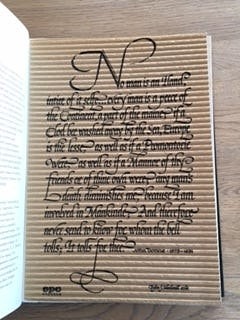 No man is an Iland,
intire of it selfe; every man is a peece of
the Continent, a part of the maine; if a
Clod bee washed away by the Sea, Europe
is the lesse, as well as if a Promontorie
were, as well as if a Mannor of thy
friends or of thine own were; any mans
death diminishes me, because I am
involved in Mankinde; And therefore
never send to know for whom the bell
tolls; It tolls for thee.
JOHN DONNE · 1573–1631
epc